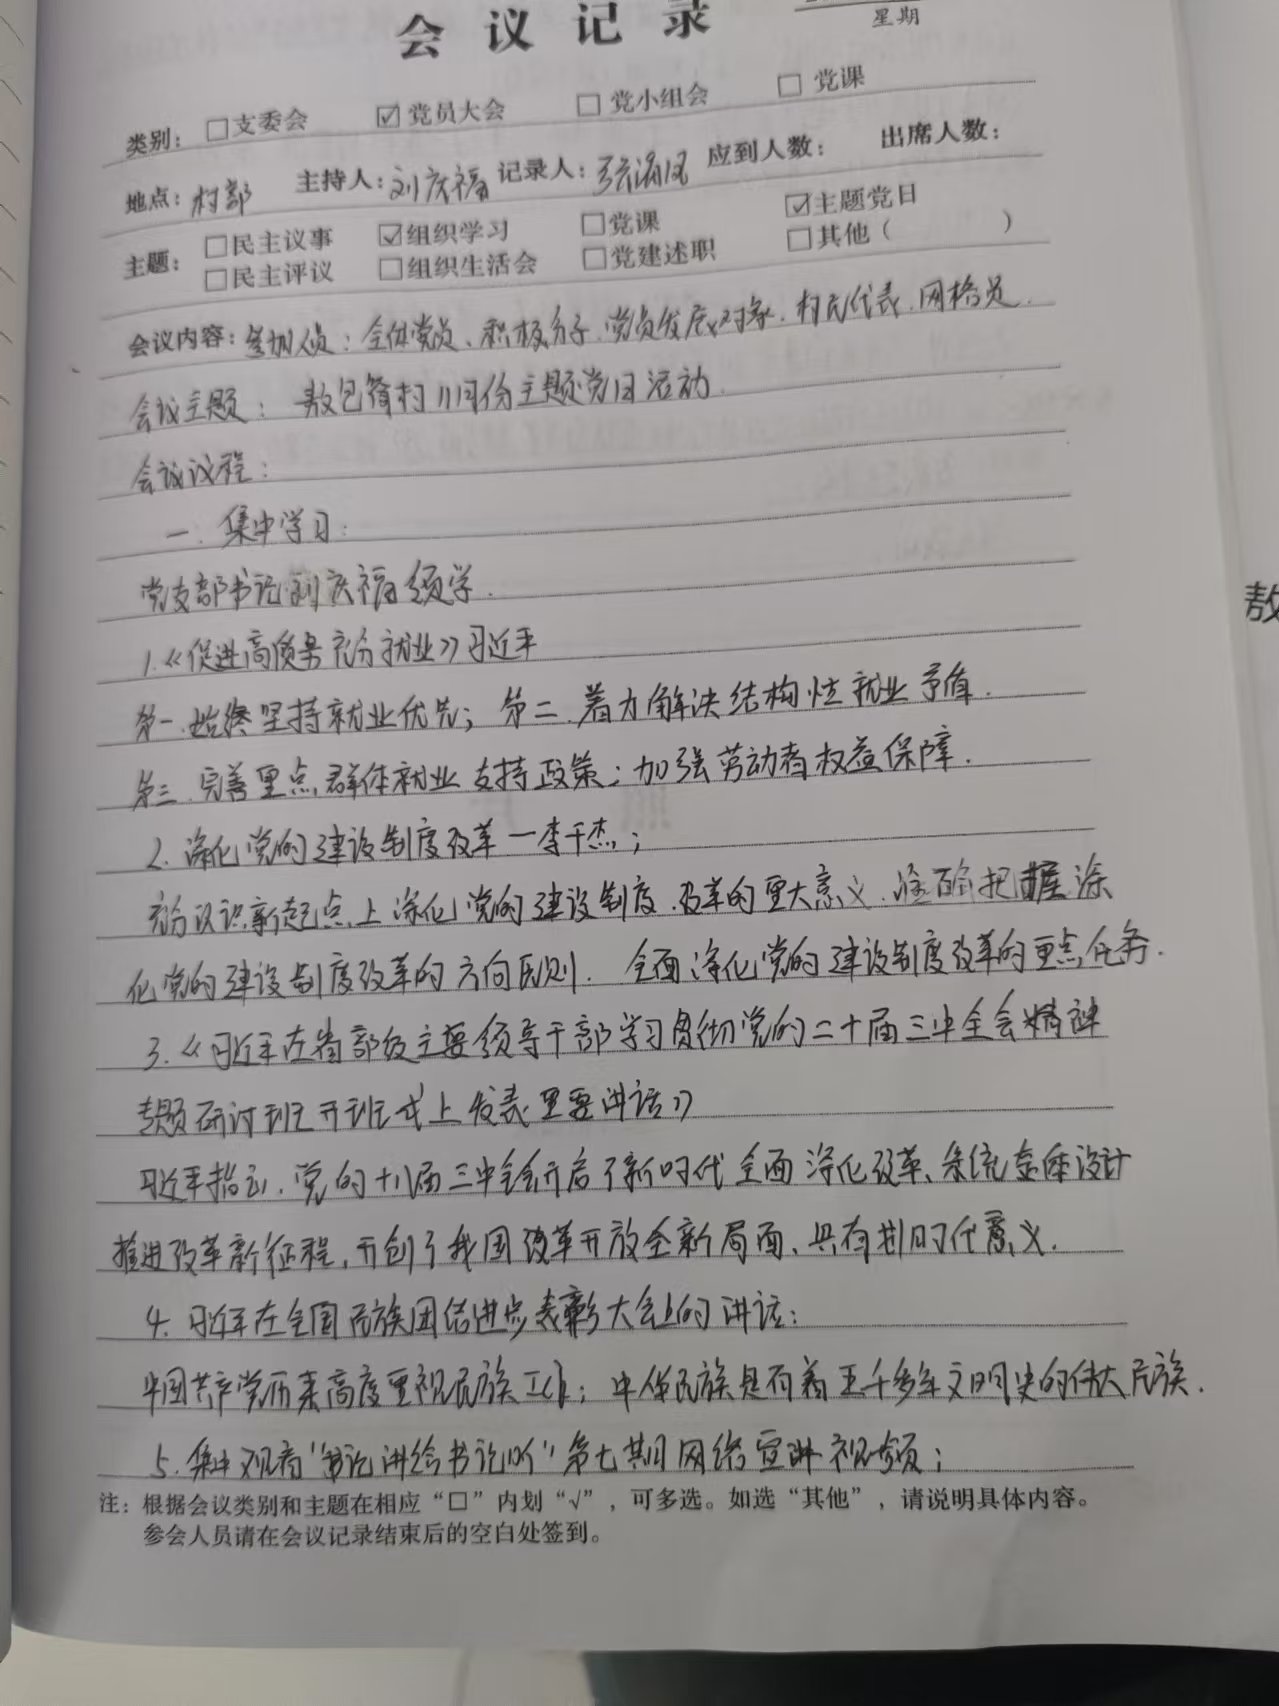 会议记录
星期
类别：□支委会 ☑党员大会 □党小组会 □党课
地点：村部 主持人：刘庆福 记录人： 应到人数： 出席人数：
主题：□民主议事 ☑组织学习 □党课 ☑主题党日
□民主评议 □组织生活会 □党建述职 □其他（ ）
会议内容：参加人员：全体党员、积极分子、党员发展对象、村民代表、网格员.
会议主题：敖包筒村11月份主题党日活动.
会议议程：
一. 集中学习：
党支部书记刘庆福领学.
1.《促进高质量充分就业》习近平
第一.始终坚持就业优先；第二.着力解决结构性就业矛盾.
第三.完善重点群体就业支持政策；加强劳动者权益保障.
2. 深化党的建设制度改革—李干杰；
充分认识新起点上深化党的建设制度改革的重大意义.准确把握深
化党的建设制度改革的方向原则. 全面深化党的建设制度改革的重点任务.
3.《习近平在省部级主要领导干部学习贯彻党的二十届三中全会精神
专题研讨班开班式上发表重要讲话》
习近平指出.党的十八届三中全会开启了新时代全面深化改革、系统整体设计
推进改革新征程,开创了我国改革开放全新局面、具有划时代意义.
4. 习近平在全国民族团结进步表彰大会上的讲话：
中国共产党历来高度重视民族工作；中华民族是有着五千多年文明史的伟大民族.
5.集中观看“书记讲给书记听”第七期网络宣讲视频；
注：根据会议类别和主题在相应“□”内划“√”，可多选。如选“其他”，请说明具体内容。
参会人员请在会议记录结束后的空白处签到。
敖